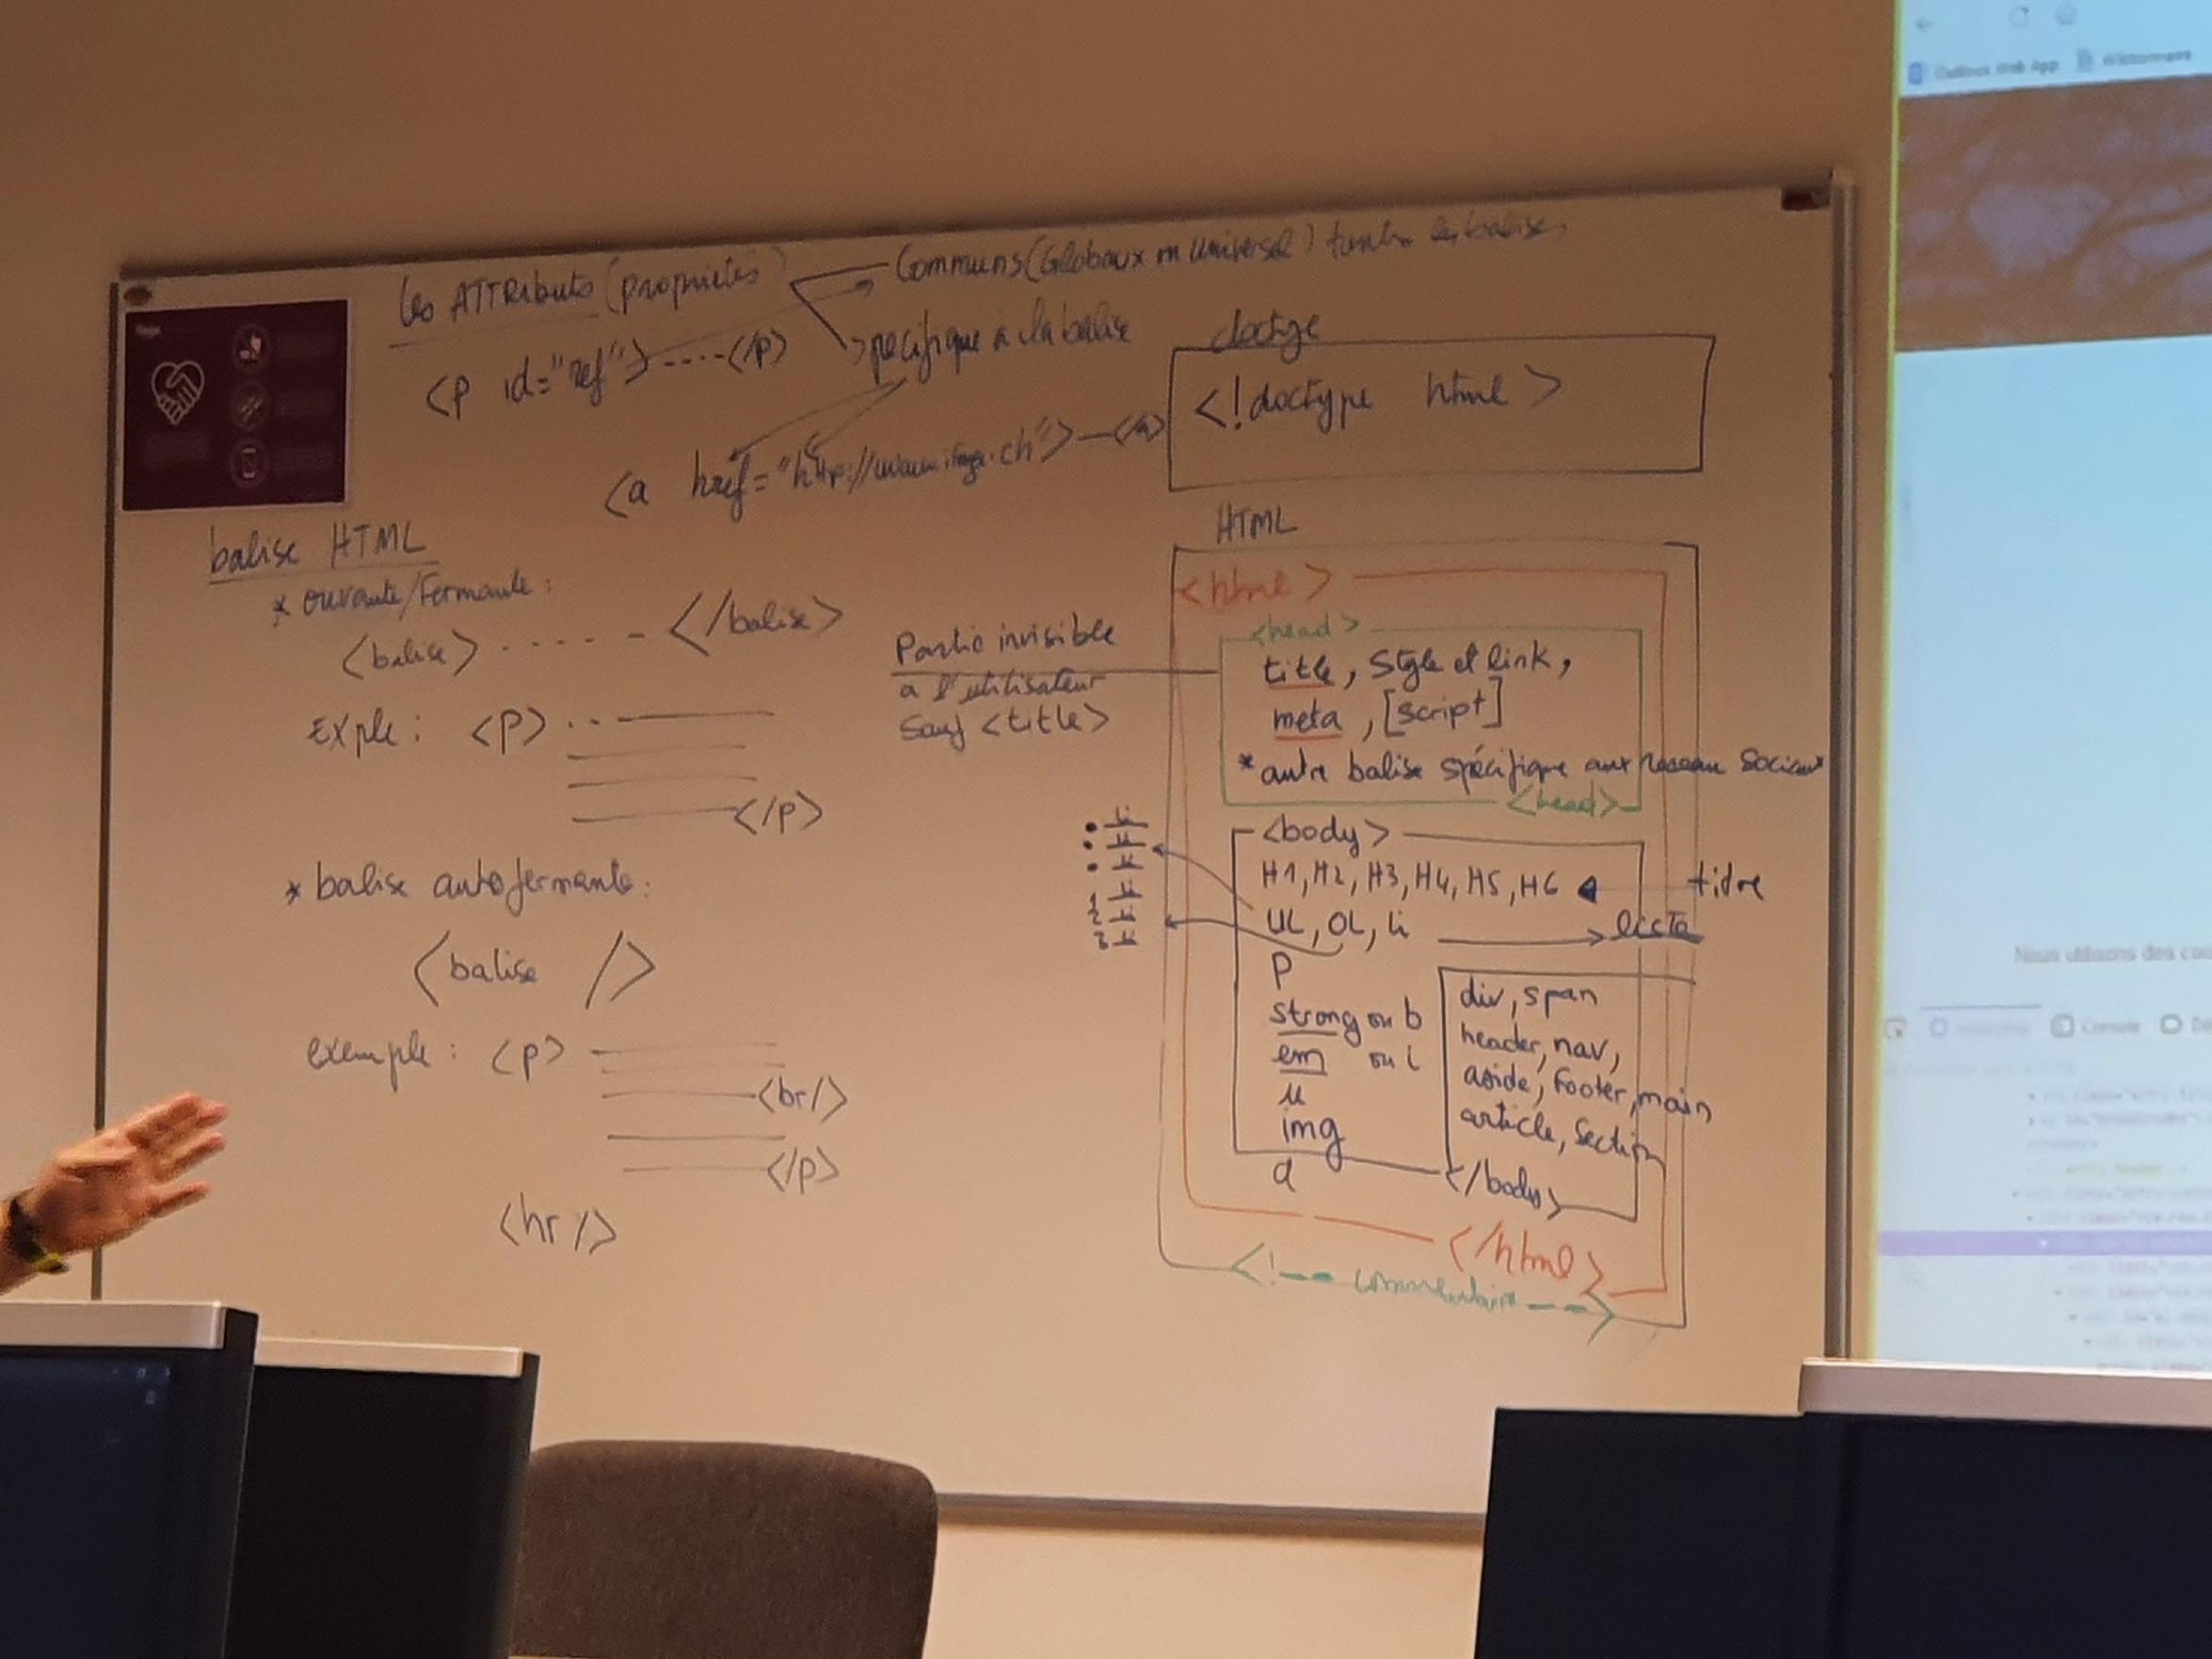 Les ATTRIButs (propriétés)
Communs (Globaux ou universel) toutes les balises
spécifique à la balise
<p id="ref"> ----</p>
<a href="http://www.ifage.ch">—</a>
doctype
<!doctype html>
balise HTML
* ouvrante/Fermante :
<balise> ..... </balise>
Exple : <p> ...
</p>
* balise autofermante :
<balise />
exemple : <p>
<br/>
</p>
<hr/>
HTML
<html>
Partie invisible
a l'utilisateur
Sauf <title>
<head>
title, Style et link,
meta, [script]
* autre balise spécifique aux reseau sociaux
<head>
<body>
H1, H2, H3, H4, H5, H6
titre
UL, OL, li
liste
• li
• li
• li
1 li
2 li
3 li
P
strong ou b
em ou i
u
img
a
div, span
header, nav,
aside, footer, main
article, section
</body>
</html>
<!-- commentaire -->
Outlook Web App
Nous utilisons des coo
Console